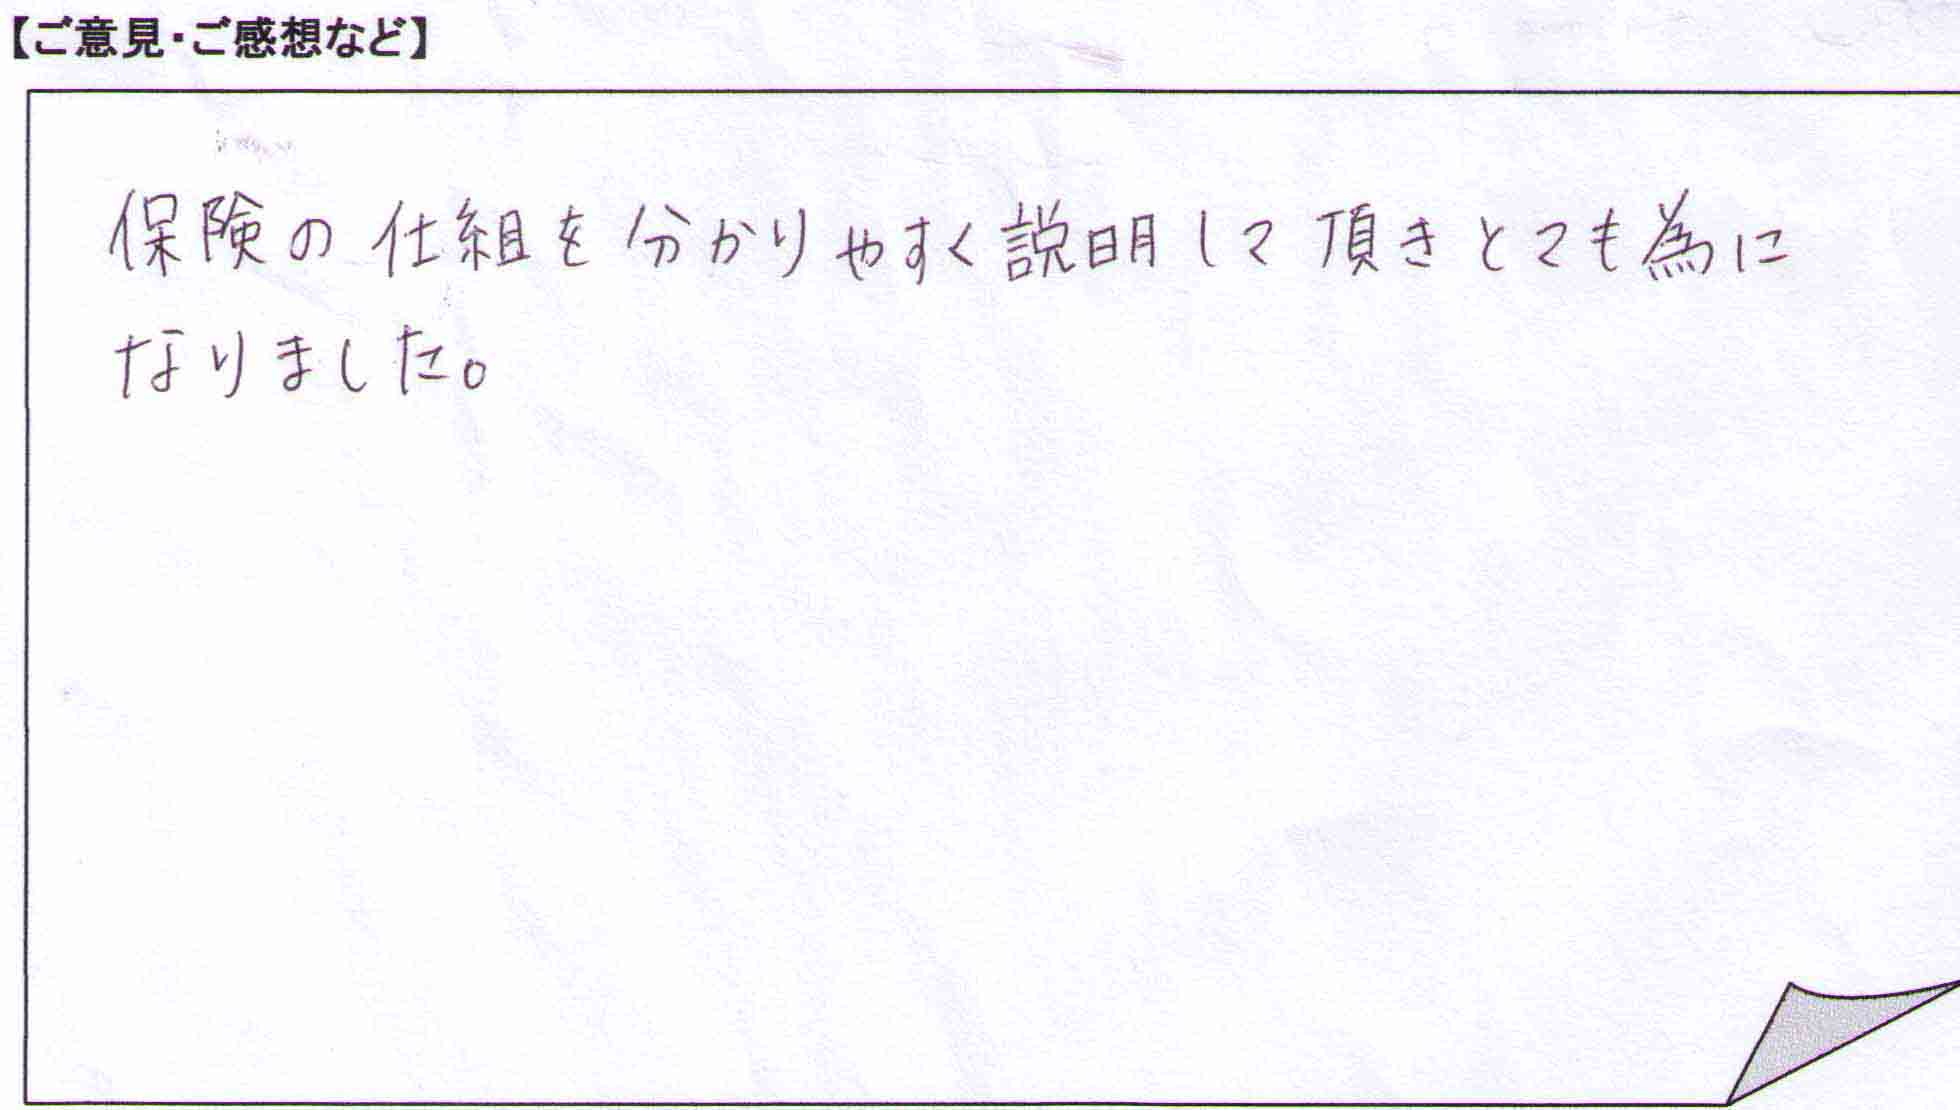 【ご意見・ご感想など】
保険の仕組を分かりやすく説明して頂きとても為に
なりました。